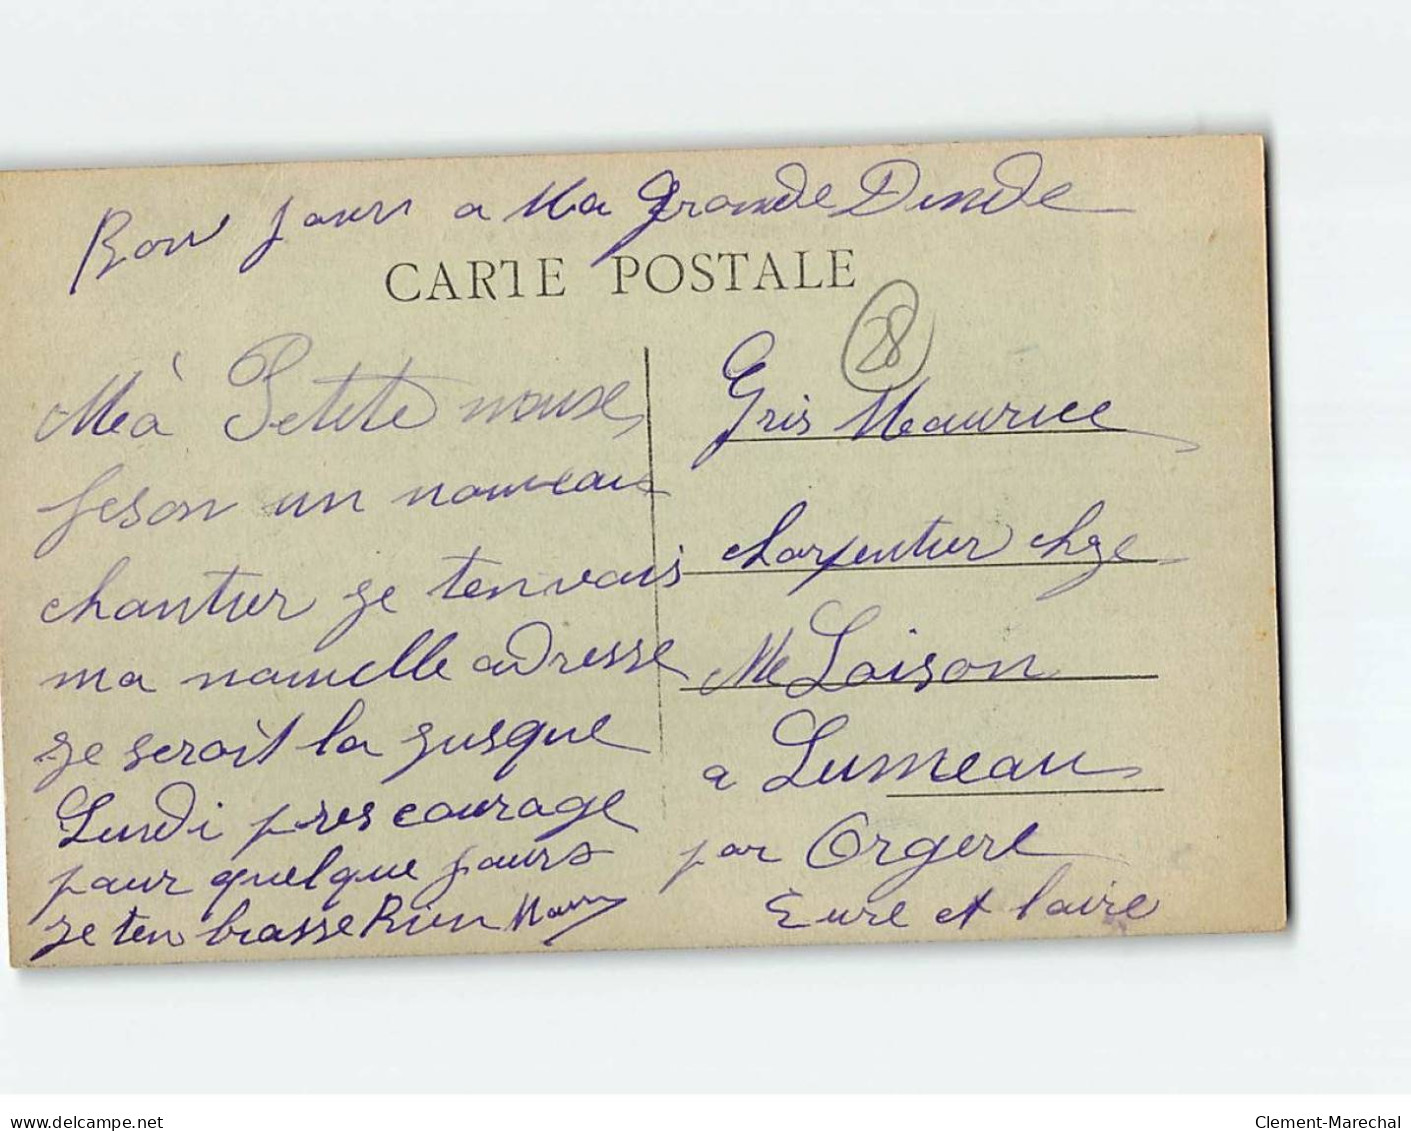 Bon jours a Ma Grande Dinde
CARTE POSTALE
28
Meà Petite nouse
feson un nouveau
chantier ge tenvais
ma nauvelle adresse
ge serait la gusque
Lundi pres courage
paur quelque jours
ge tenbrasse Rien
Gris Maurice
charpentier chze
Me Loison
a Lumeau
par Orgere
Eure et loire
www.delcampe.net
Clement-Marechal